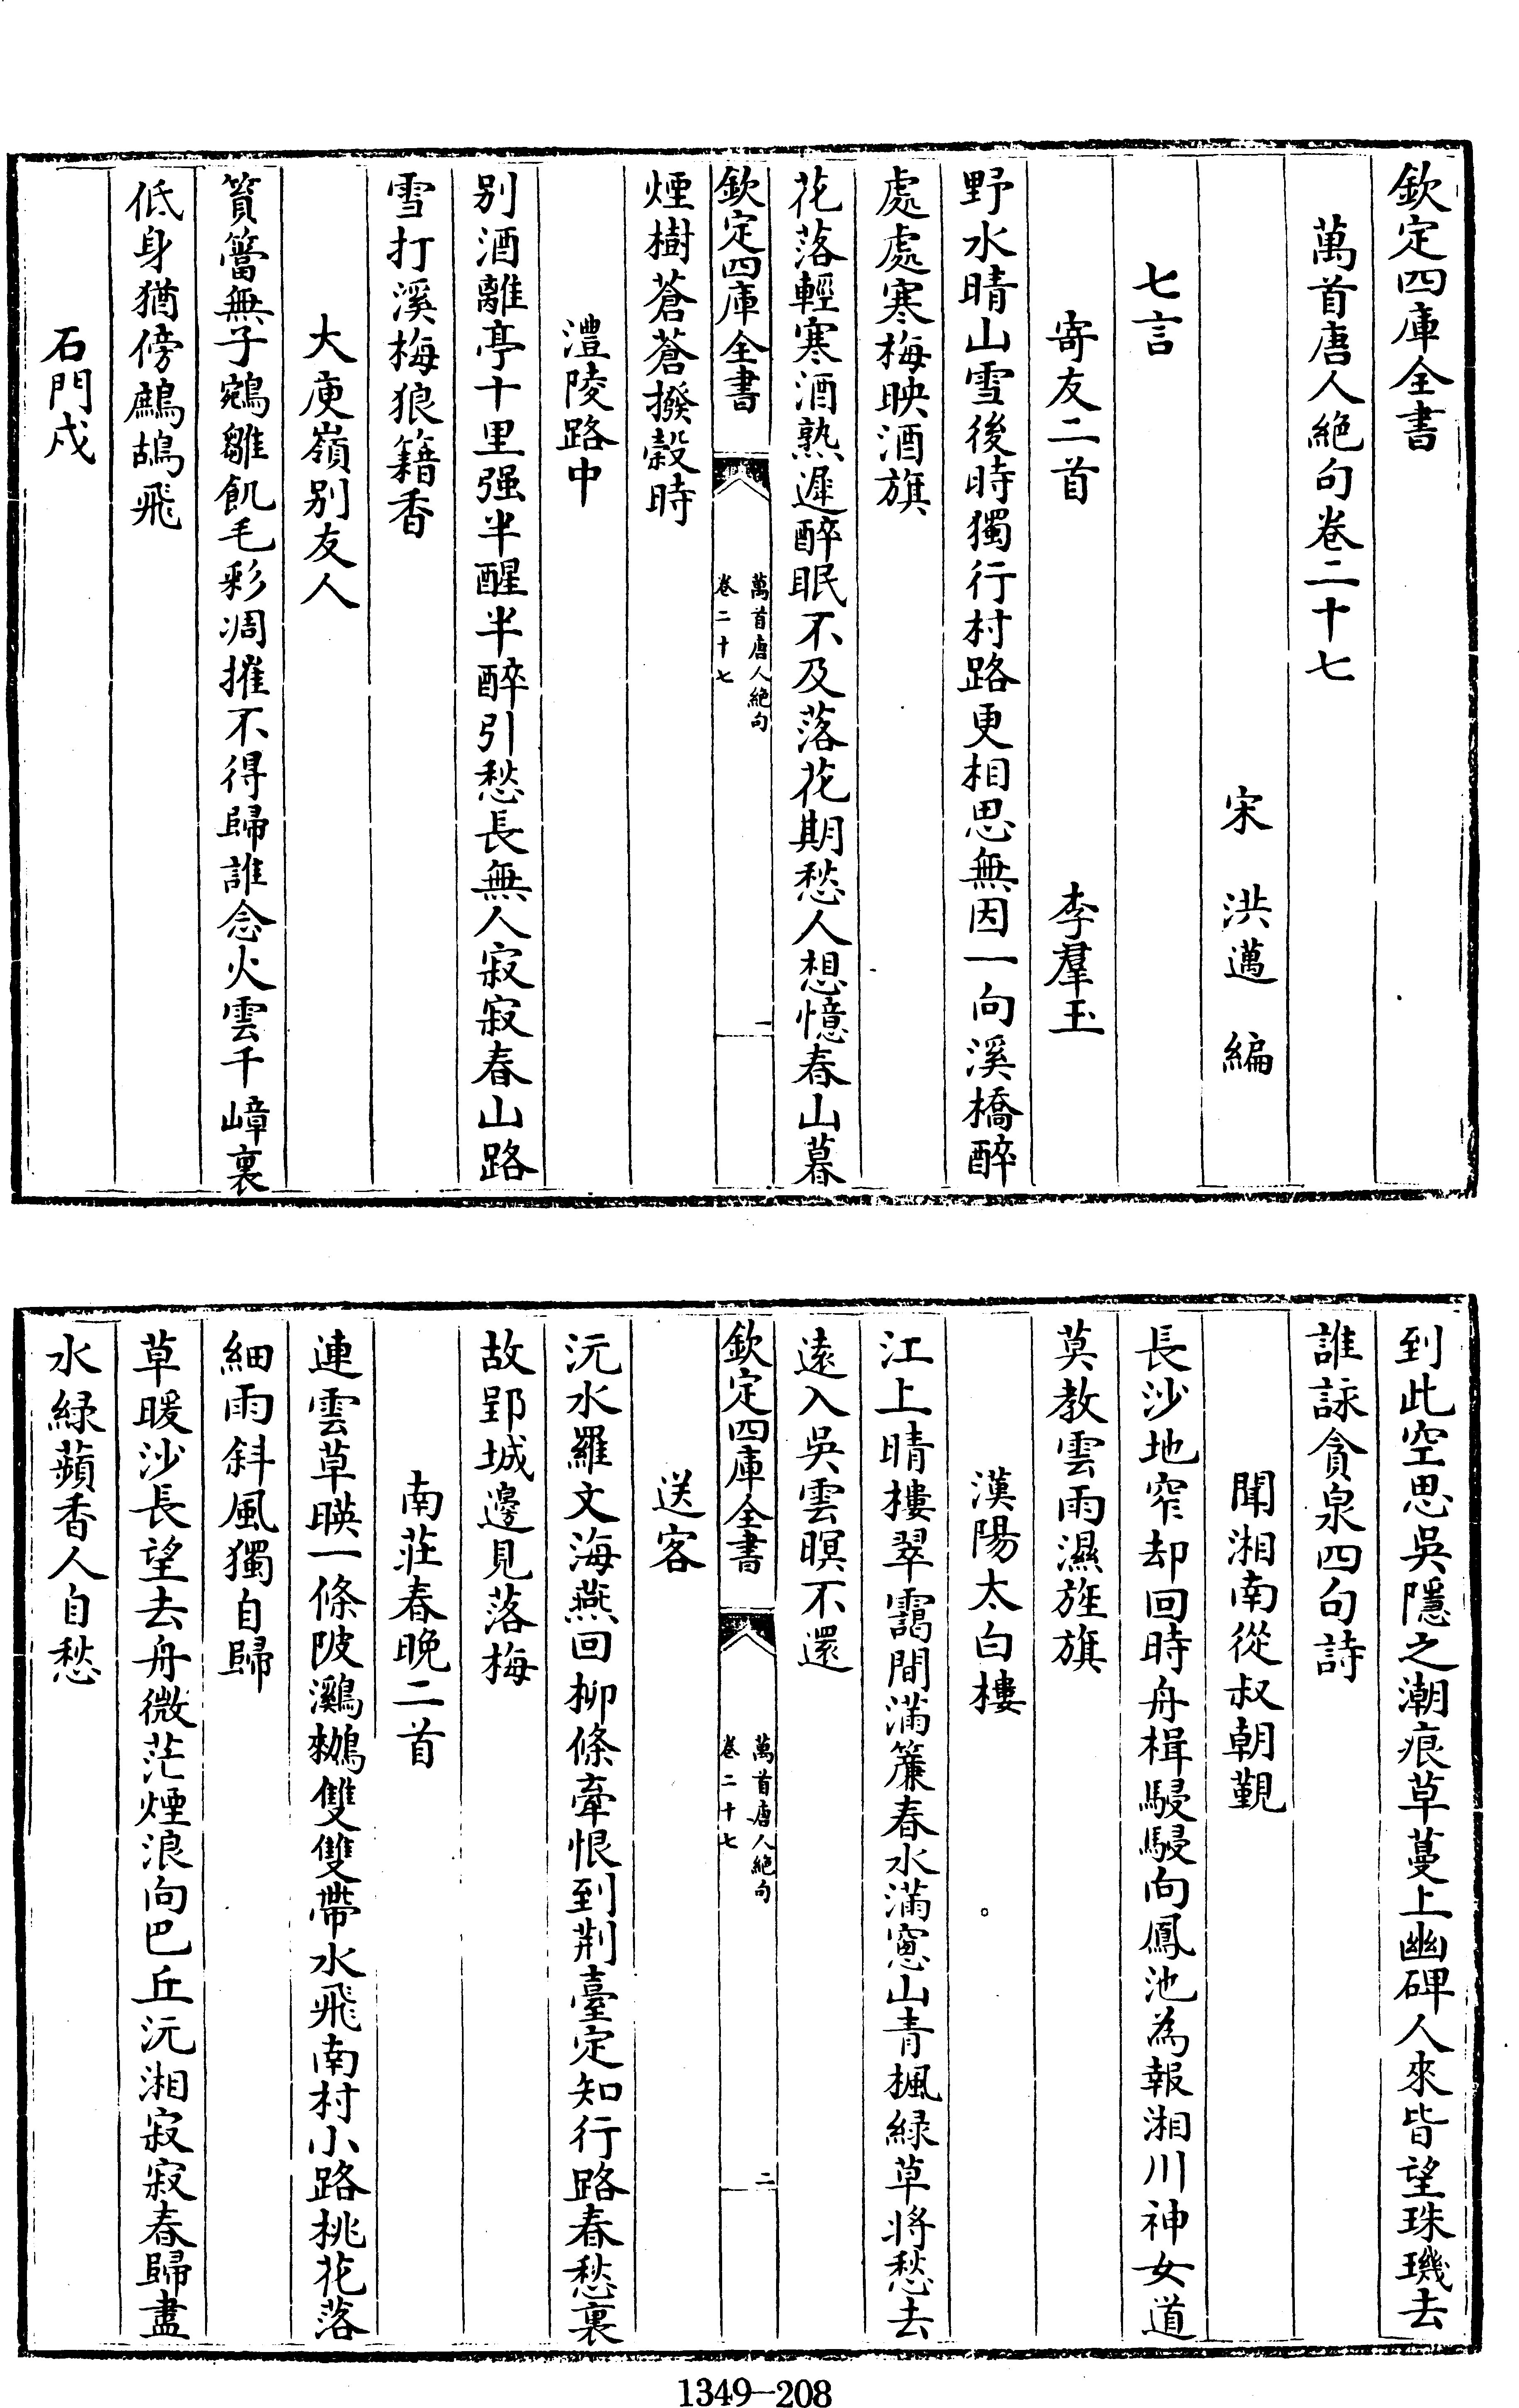 欽定四庫全書
萬首唐人絶句卷二十七
宋 洪邁 編
七言
寄友二首 李羣玉
野水晴山雪後時獨行村路更相思無因一向溪橋醉
處處寒梅映酒旗
花落輕寒酒熟遲醉眠不及落花期愁人想憶春山暮
欽定四庫全書 萬首唐人絶句 卷二十七 一
煙樹蒼蒼撥穀時
澧陵路中
别酒離亭十里强半醒半醉引愁長無人寂寂春山路
雪打溪梅狼籍香
大庾嶺别友人
篔簹無子鵷雛飢毛彩凋摧不得歸誰念火雲千嶂裏
低身猶傍鷓鴣飛
石門戍
到此空思吳隱之潮痕草蔓上幽碑人來皆望珠璣去
誰詠貪泉四句詩
聞湘南從叔朝覲
長沙地窄却回時舟楫駸駸向鳳池為報湘川神女道
莫教雲雨濕旌旗
漢陽太白樓
江上晴樓翠靄間滿簾春水滿窻山青楓緑草將愁去
遠入吳雲暝不還
欽定四庫全書 萬首唐人絶句 卷二十七 二
送客
沅水羅文海燕回柳條牽恨到荆臺定知行路春愁裏
故郢城邊見落梅
南莊春晚二首
連雲草暎一條陂鸂鶒雙雙帶水飛南村小路桃花落
細雨斜風獨自歸
草暖沙長望去舟微茫煙浪向巴丘沅湘寂寂春歸盡
水緑蘋香人自愁
1349-208